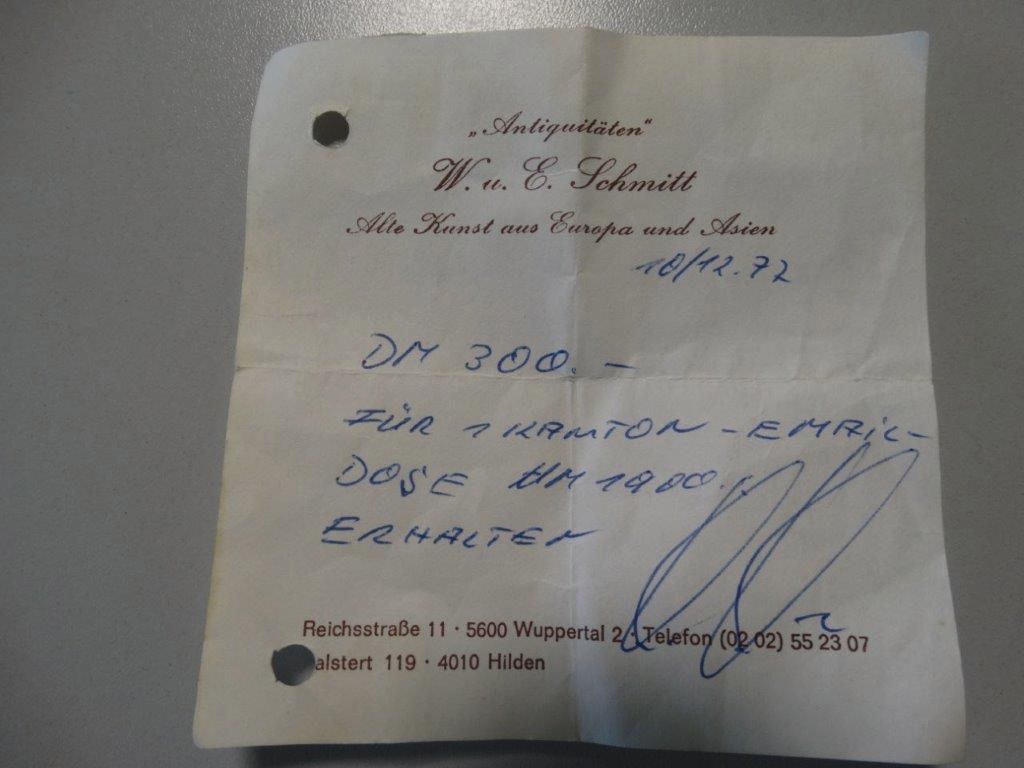 „Antiquitäten"
W. u. E. Schmitt
Alte Kunst aus Europa und Asien
10/12.77
DM 300.-
FÜR 1 KANTON-EMAIL-
DOSE UM 1900.
ERHALTEN
Reichsstraße 11 · 5600 Wuppertal 2 · Telefon (02 02) 55 23 07
alstert 119 · 4010 Hilden